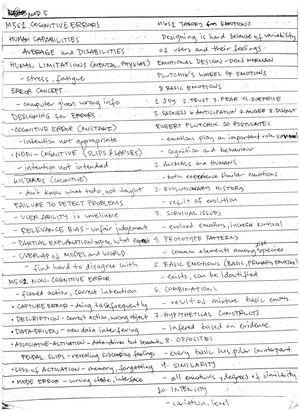 M3S1 COGNITIVE ERRORS
HUMAN CAPABILITIES
AVERAGE and DISABILITIES
HUMAN LIMITATIONS (MENTAL, PHYSICAL)
- stress, fatigue
ERROR CONCEPT
- computer given wrong info
DESIGNING for ERRORS
• COGNITIVE ERROR (MISTAKE)
- intention not appropriate
• NON-COGNITIVE (SLIPS & LAPSES)
- intention not intended
MISTAKES (COGNITIVE)
- don't know what todo, not taught
FAILURE TO DETECT PROBLEMS
- USER ABILITY is unreliable
- RELEVANCE BIAS - unfair judgement
- PARTIAL EXPLANATION
- OVERLAP of MODEL and WORLD
- find hard to disagree with
NON-COGNITIVE ERROR
- flawed action, correct intention
• CAPTURE ERROR - doing task frequently
• DESCRIPTION - correct action, wrong object
• DATA-DRIVEN - new data interfering
• ASSOCIATIVE-ACTIVATION - data driven but
FREUDIAL SLIPS - revealing subconscious feelings
• LOSS of ACTIVATION - memory, forgetting
• MODE ERROR - wrong state, interface
THEORY for EMOTIONS
Designing is hard because of variability
of users and their feelings
EMOTIONAL DESIGN - DON NORMAN
PLUTCHIK'S WHEEL of EMOTIONS
8 BASIC EMOTIONS
1. JOY 2. TRUST 3. FEAR 4. SURPRISE
5. SADNESS 6. ANTICIPATION 7. ANGER 8. DISGUST
ROBERT PLUTCHIK 10 POSTULATES
- emotions play an important role
cognition and behaviour
1. ANIMALS and HUMANS
- both experience similar emotions
2. EVOLUTIONARY HISTORY
- result of evolution
3. SURVIVAL ISSUES
- evolved emotions, increase survival
4. PROTOTYPE PATTERNS
- common elements among species
5. BASIC EMOTIONS
- exists, can be identified
6. COMBINATIONS
- result of mixture basic emots.
7. HYPOTHETICAL CONSTRUCTS
- infered based on evidence
8. OPPOSITES
- every basic has polar counterpart
9. SIMILARITY
- all emotions, degrees of similarity
10. INTENSITY
- variation, level